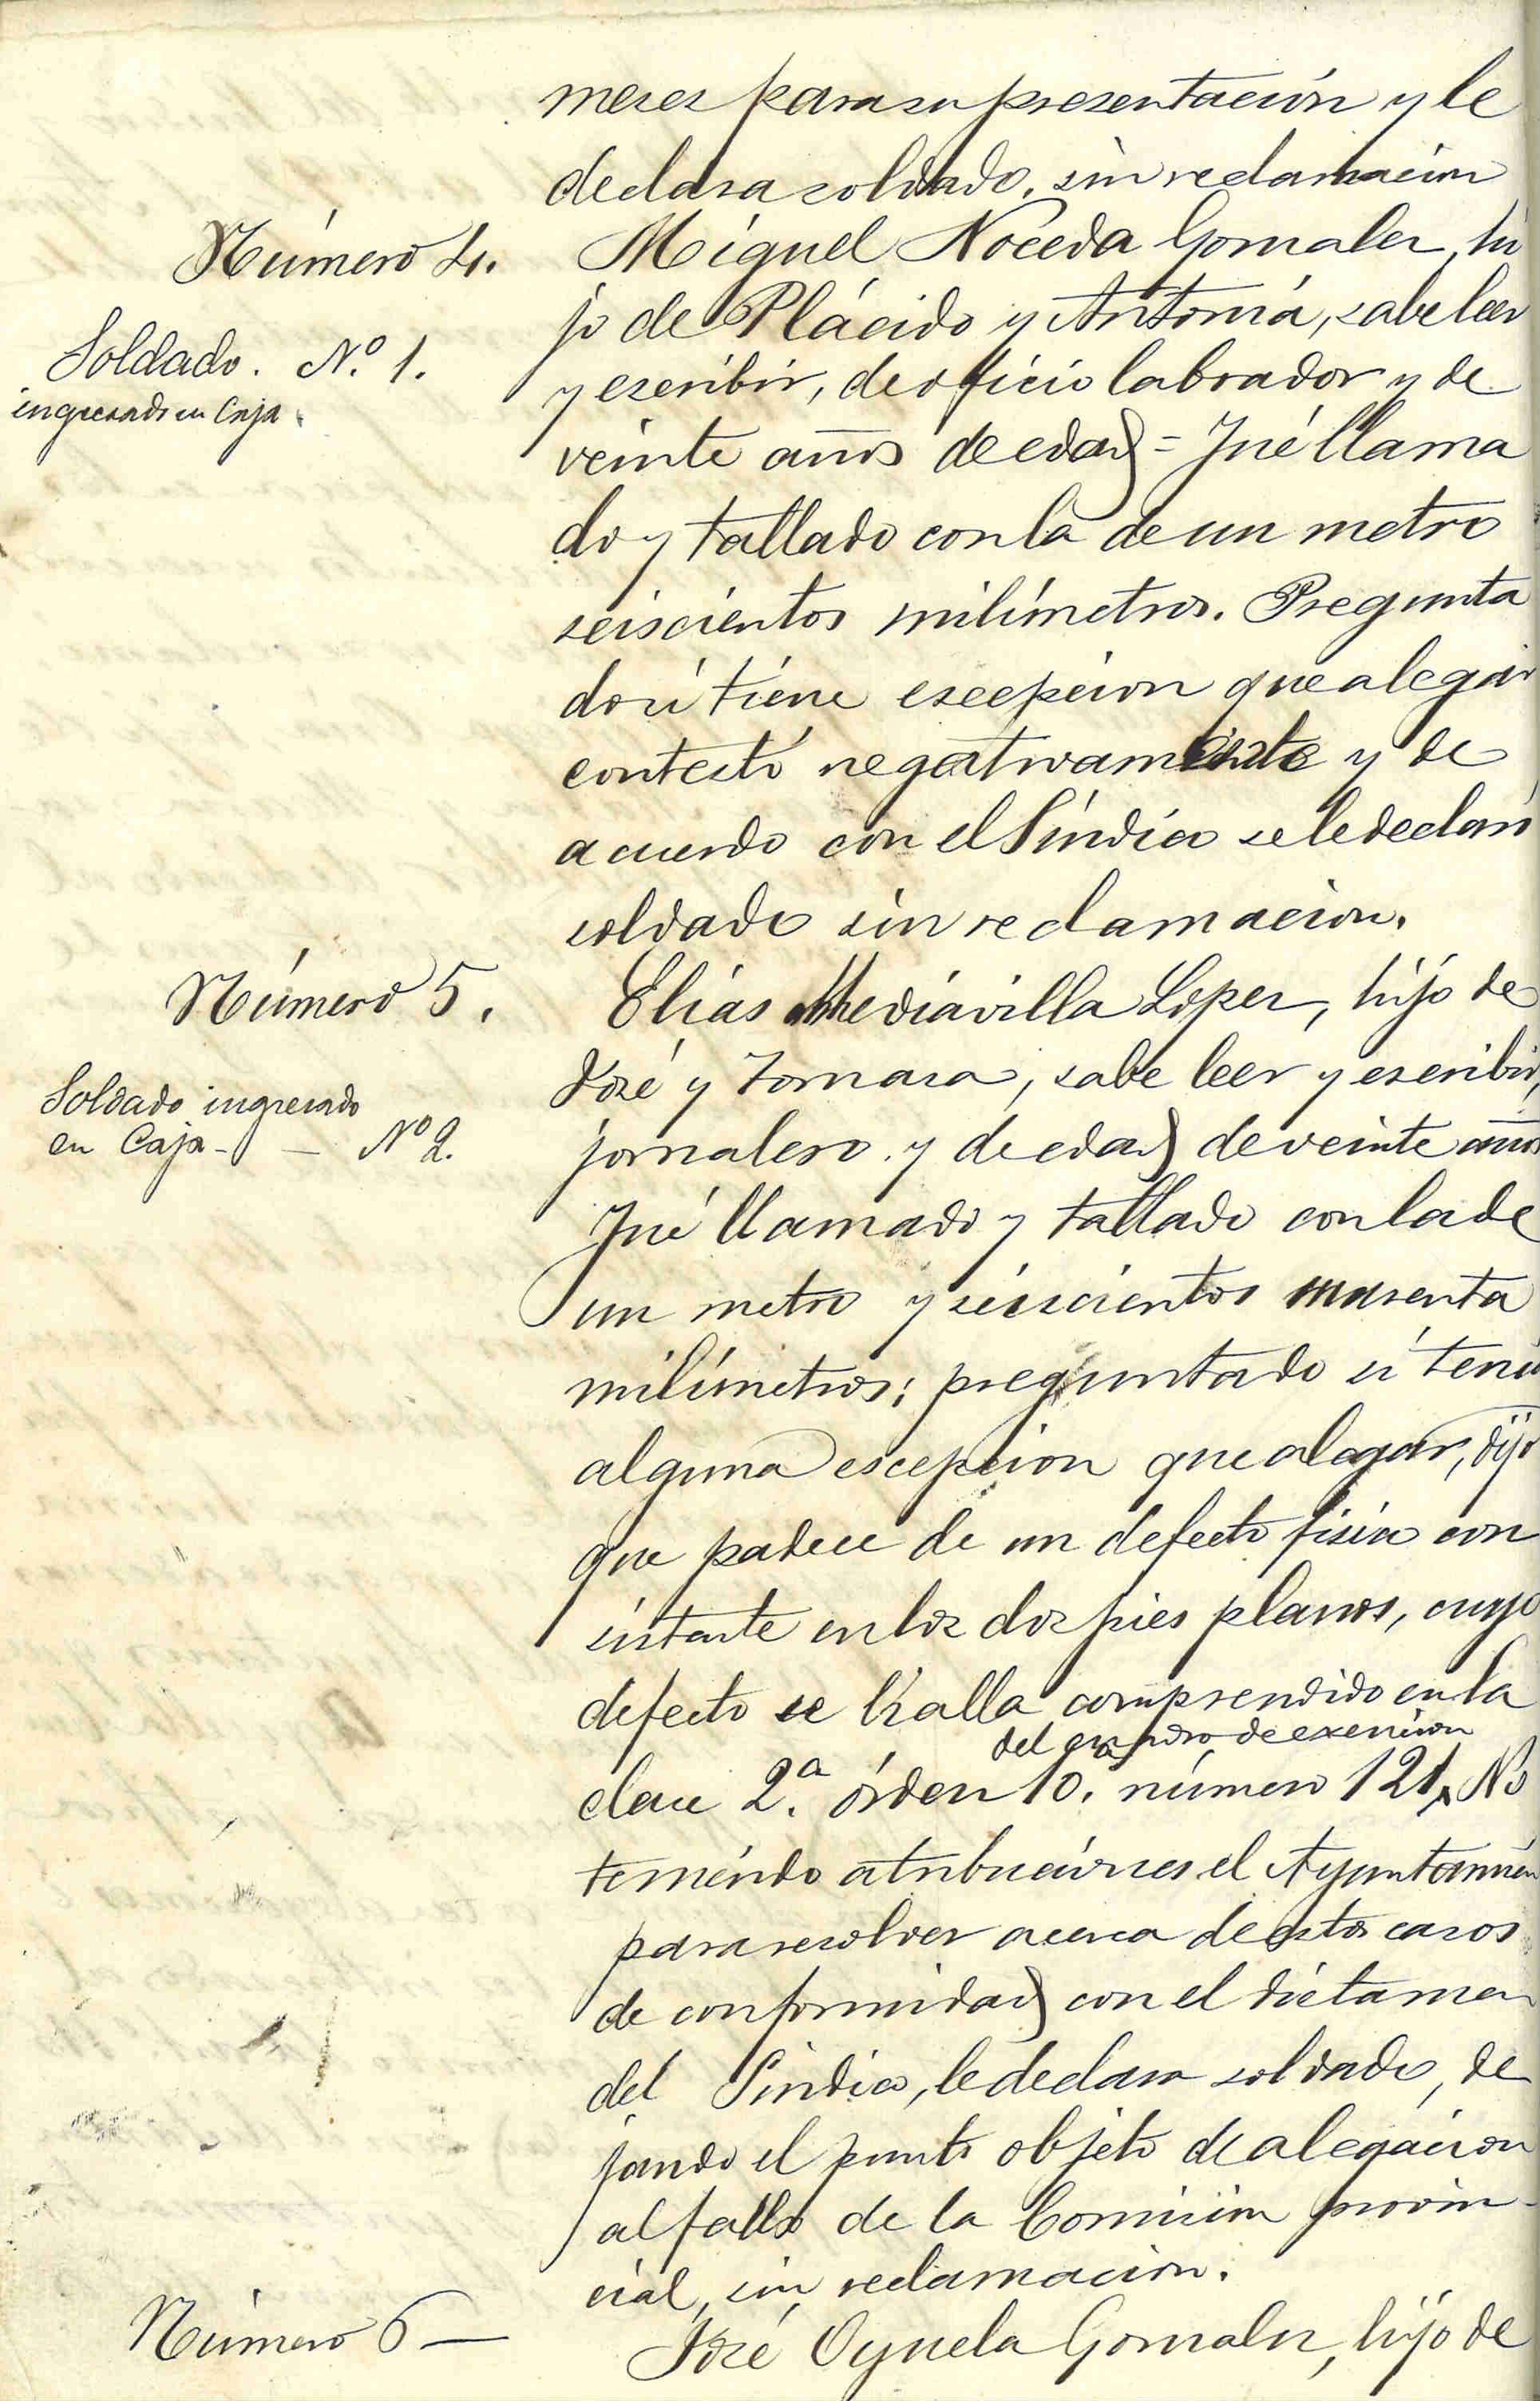 meses para su presentación y le
declara soldado, sin reclamación
Número 4.
Miguel Noceda Gonzalez, hi
jo de Plácido y Antonia, sabe leer
Soldado. Nº 1.
y escribir, de oficio labrador y de
ingresado en Caja
veinte años de edad = Fué llama
do y tallado con la de un metro
seiscientos milímetros. Pregunta
do si tiene escepcion que alegar
contestó negativamente y de
acuerdo con el Síndico se le declaró
soldado sin reclamacion.
Número 5.
Elías Mediavilla Lopez, hijo de
José y Tomasa, sabe leer y escribir,
Soldado ingresado
en Caja - - Nº 2.
jornalero y de edad de veinte años
Fué llamado y tallado con la de
un metro y seiscientos
milímetros; preguntado si tenia
alguna escepcion que alegar, dijo
que padece de un defecto físico con
sistente en los dos pies planos, cuyo
defecto se halla comprendido en la
del cuadro de exencion
clase 2.ª órden 10. número 121, No
teniendo atribuciones el Ayuntamien
para resolver acerca de estos casos
de conformidad con el dictamen
del Síndico, le declara soldado, de
jando el punto objeto de alegacion
al fallo de la Comisión provin-
cial, sin reclamacion.
Número 6 —
José Oyuela Gonzalez, hijo de